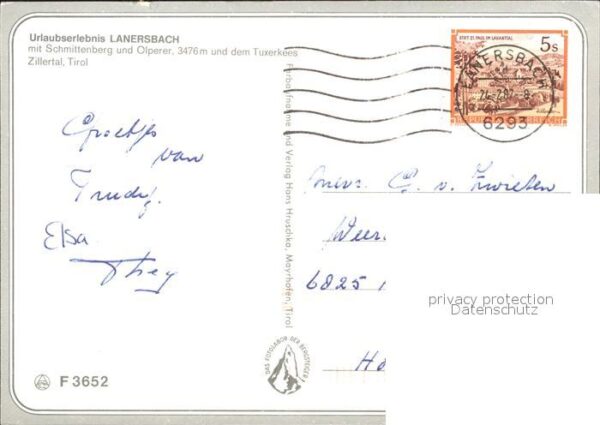 Urlaubserlebnis LANERSBACH
mit Schmittenberg und Olperer, 3476 m und dem Tuxerkees
Zillertal, Tirol
STIFT ST. PAUL IM LAVANTTAL
5 s
REPUBLIK ÖSTERREICH
LANERSBACH
6293
Groetjes
van
Trudy.
Elsa
Mevr. G. v. Zwieten
Weer
6825
Ho
Farbaufnahme und Verlag Hans Hruschka, Mayrhofen, Tirol
DAS FOTOLABOR DER BERGSTEIGER
F 3652
privacy protection
Datenschutz